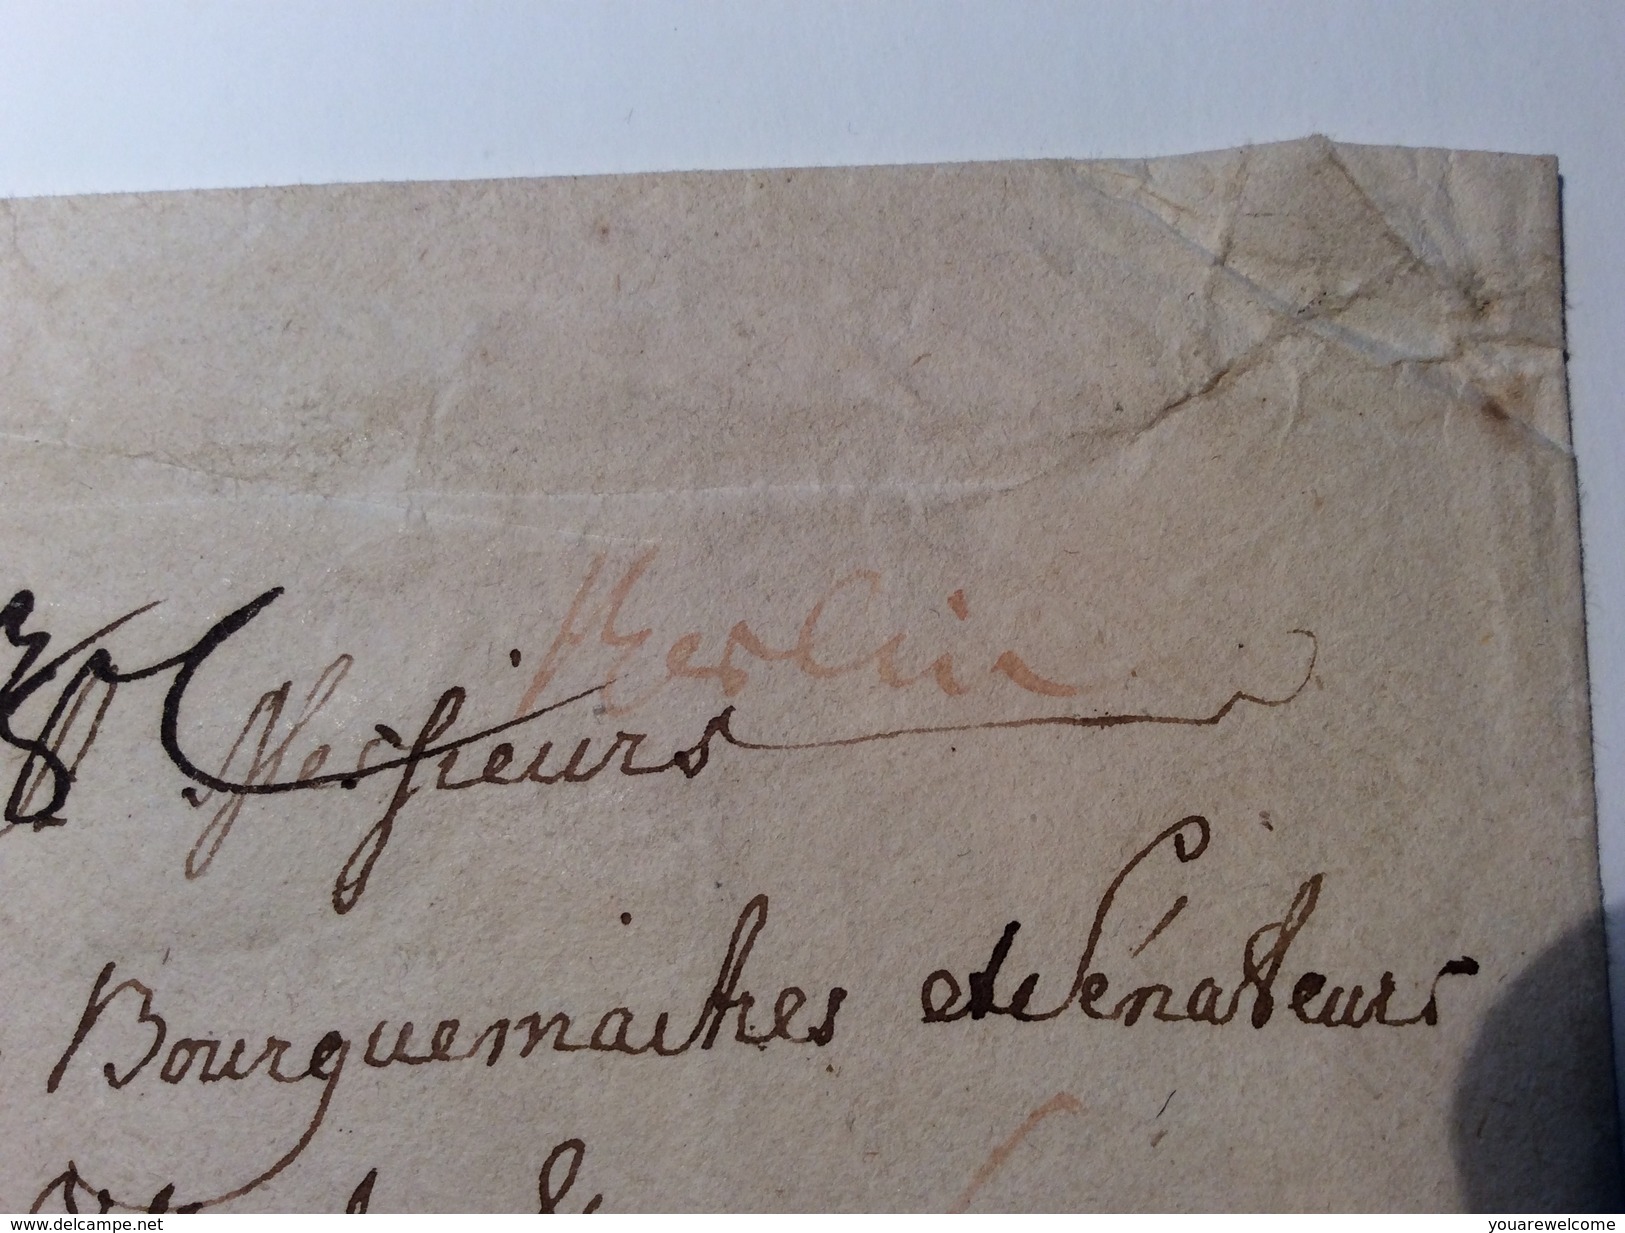 Berlin
Messieurs
Bourguemaitres et Sénateurs
delcampe.net
youarewelcome